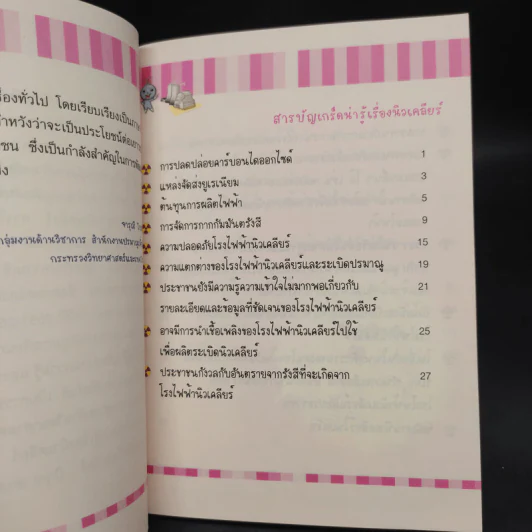 ื่องทั่วไป โดยเรียบเรียงเป็นภา
าหวังว่าจะเป็นประโยชน์ต่อเยาว
ชน ซึ่งเป็นกำลังสำคัญในการพัฒ
กระทรวงวิทยาศาสตร์และเท
สารบัญเกร็ดน่ารู้เรื่องนิวเคลียร์
การปลดปล่อยคาร์บอนไดออกไซด์ 1
แหล่งจัดส่งยูเรเนียม 3
ต้นทุนการผลิตไฟฟ้า 5
การจัดการกากกัมมันตรังสี 9
ความปลอดภัยโรงไฟฟ้านิวเคลียร์ 15
ความแตกต่างของโรงไฟฟ้านิวเคลียร์และระเบิดปรมาณู 19
ประชาชนยังมีความรู้ความเข้าใจไม่มากพอเกี่ยวกับ 21
รายละเอียดและข้อมูลที่ชัดเจนของโรงไฟฟ้านิวเคลียร์
อาจมีการนำเชื้อเพลิงของโรงไฟฟ้านิวเคลียร์ไปใช้ 25
เพื่อผลิตระเบิดนิวเคลียร์
ประชาชนกังวลกับอันตรายจากรังสีที่จะเกิดจาก 27
โรงไฟฟ้านิวเคลียร์